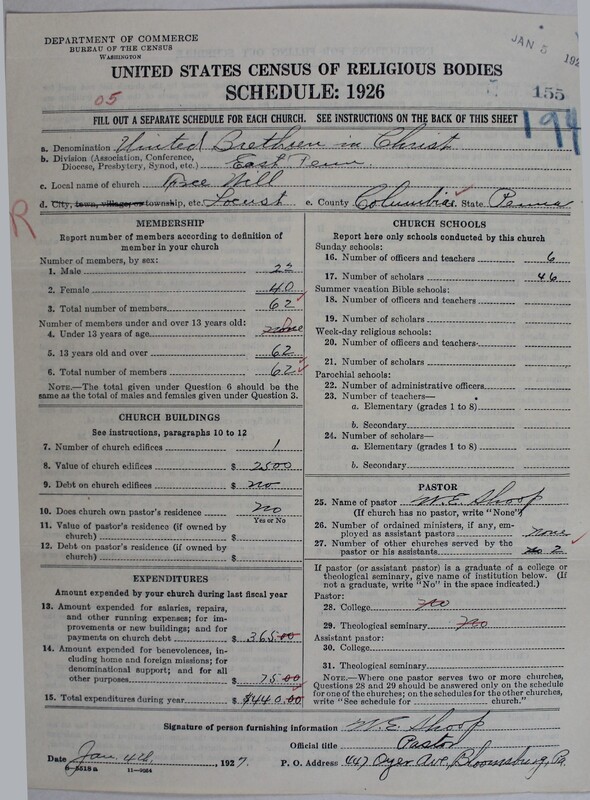 DEPARTMENT OF COMMERCE
BUREAU OF THE CENSUS
WASHINGTON
JAN 5 192
UNITED STATES CENSUS OF RELIGIOUS BODIES
SCHEDULE: 1926
05
155
194
FILL OUT A SEPARATE SCHEDULE FOR EACH CHURCH. SEE INSTRUCTIONS ON THE BACK OF THIS SHEET
a. Denomination United Brethren in Christ
b. Division (Association, Conference,
Diocese, Presbytery, Synod, etc.) East Penn.
c. Local name of church Free Will
d. City, town, village, or township, etc. Locust e. County Columbia State Penna
R
MEMBERSHIP
Report number of members according to definition of
member in your church
Number of members, by sex:
1. Male 22
2. Female 40
3. Total number of members 62
Number of members under and over 13 years old:
4. Under 13 years of age none
5. 13 years old and over 62
6. Total number of members 62
NOTE.—The total given under Question 6 should be the
same as the total of males and females given under Question 3.
CHURCH BUILDINGS
See instructions, paragraphs 10 to 12
7. Number of church edifices 1
8. Value of church edifices $ 2500
9. Debt on church edifices $ no
10. Does church own pastor's residence no
Yes or No
11. Value of pastor's residence (if owned by
church) $
12. Debt on pastor's residence (if owned by
church) $
EXPENDITURES
Amount expended by your church during last fiscal year
13. Amount expended for salaries, repairs,
and other running expenses; for im-
provements or new buildings; and for
payments on church debt $ 365.00
14. Amount expended for benevolences, in-
cluding home and foreign missions; for
denominational support; and for all
other purposes $ 75.00
15. Total expenditures during year $440.00
CHURCH SCHOOLS
Report here only schools conducted by this church
Sunday schools:
16. Number of officers and teachers 6
17. Number of scholars 46
Summer vacation Bible schools:
18. Number of officers and teachers
19. Number of scholars
Week-day religious schools:
20. Number of officers and teachers
21. Number of scholars
Parochial schools:
22. Number of administrative officers
23. Number of teachers—
a. Elementary (grades 1 to 8)
b. Secondary
24. Number of scholars—
a. Elementary (grades 1 to 8)
b. Secondary
PASTOR
25. Name of pastor W. E. Shoop
(If church has no pastor, write "None")
26. Number of ordained ministers, if any, em-
ployed as assistant pastors none
27. Number of other churches served by the
pastor or his assistants no 2
If pastor (or assistant pastor) is a graduate of a college or
theological seminary, give name of institution below. (If
not a graduate, write "No" in the space indicated.)
Pastor:
28. College no
29. Theological seminary no
Assistant pastor:
30. College
31. Theological seminary
NOTE.—Where one pastor serves two or more churches,
Questions 28 and 29 should be answered only on the schedule
for one of the churches; on the schedules for the other churches,
write "See schedule for church."
Signature of person furnishing information W. E. Shoop
Official title Pastor
Date Jan. 4th, 1927. P. O. Address 447 Oyer Ave, Bloomsburg, Pa.
8-5518a 11-9064